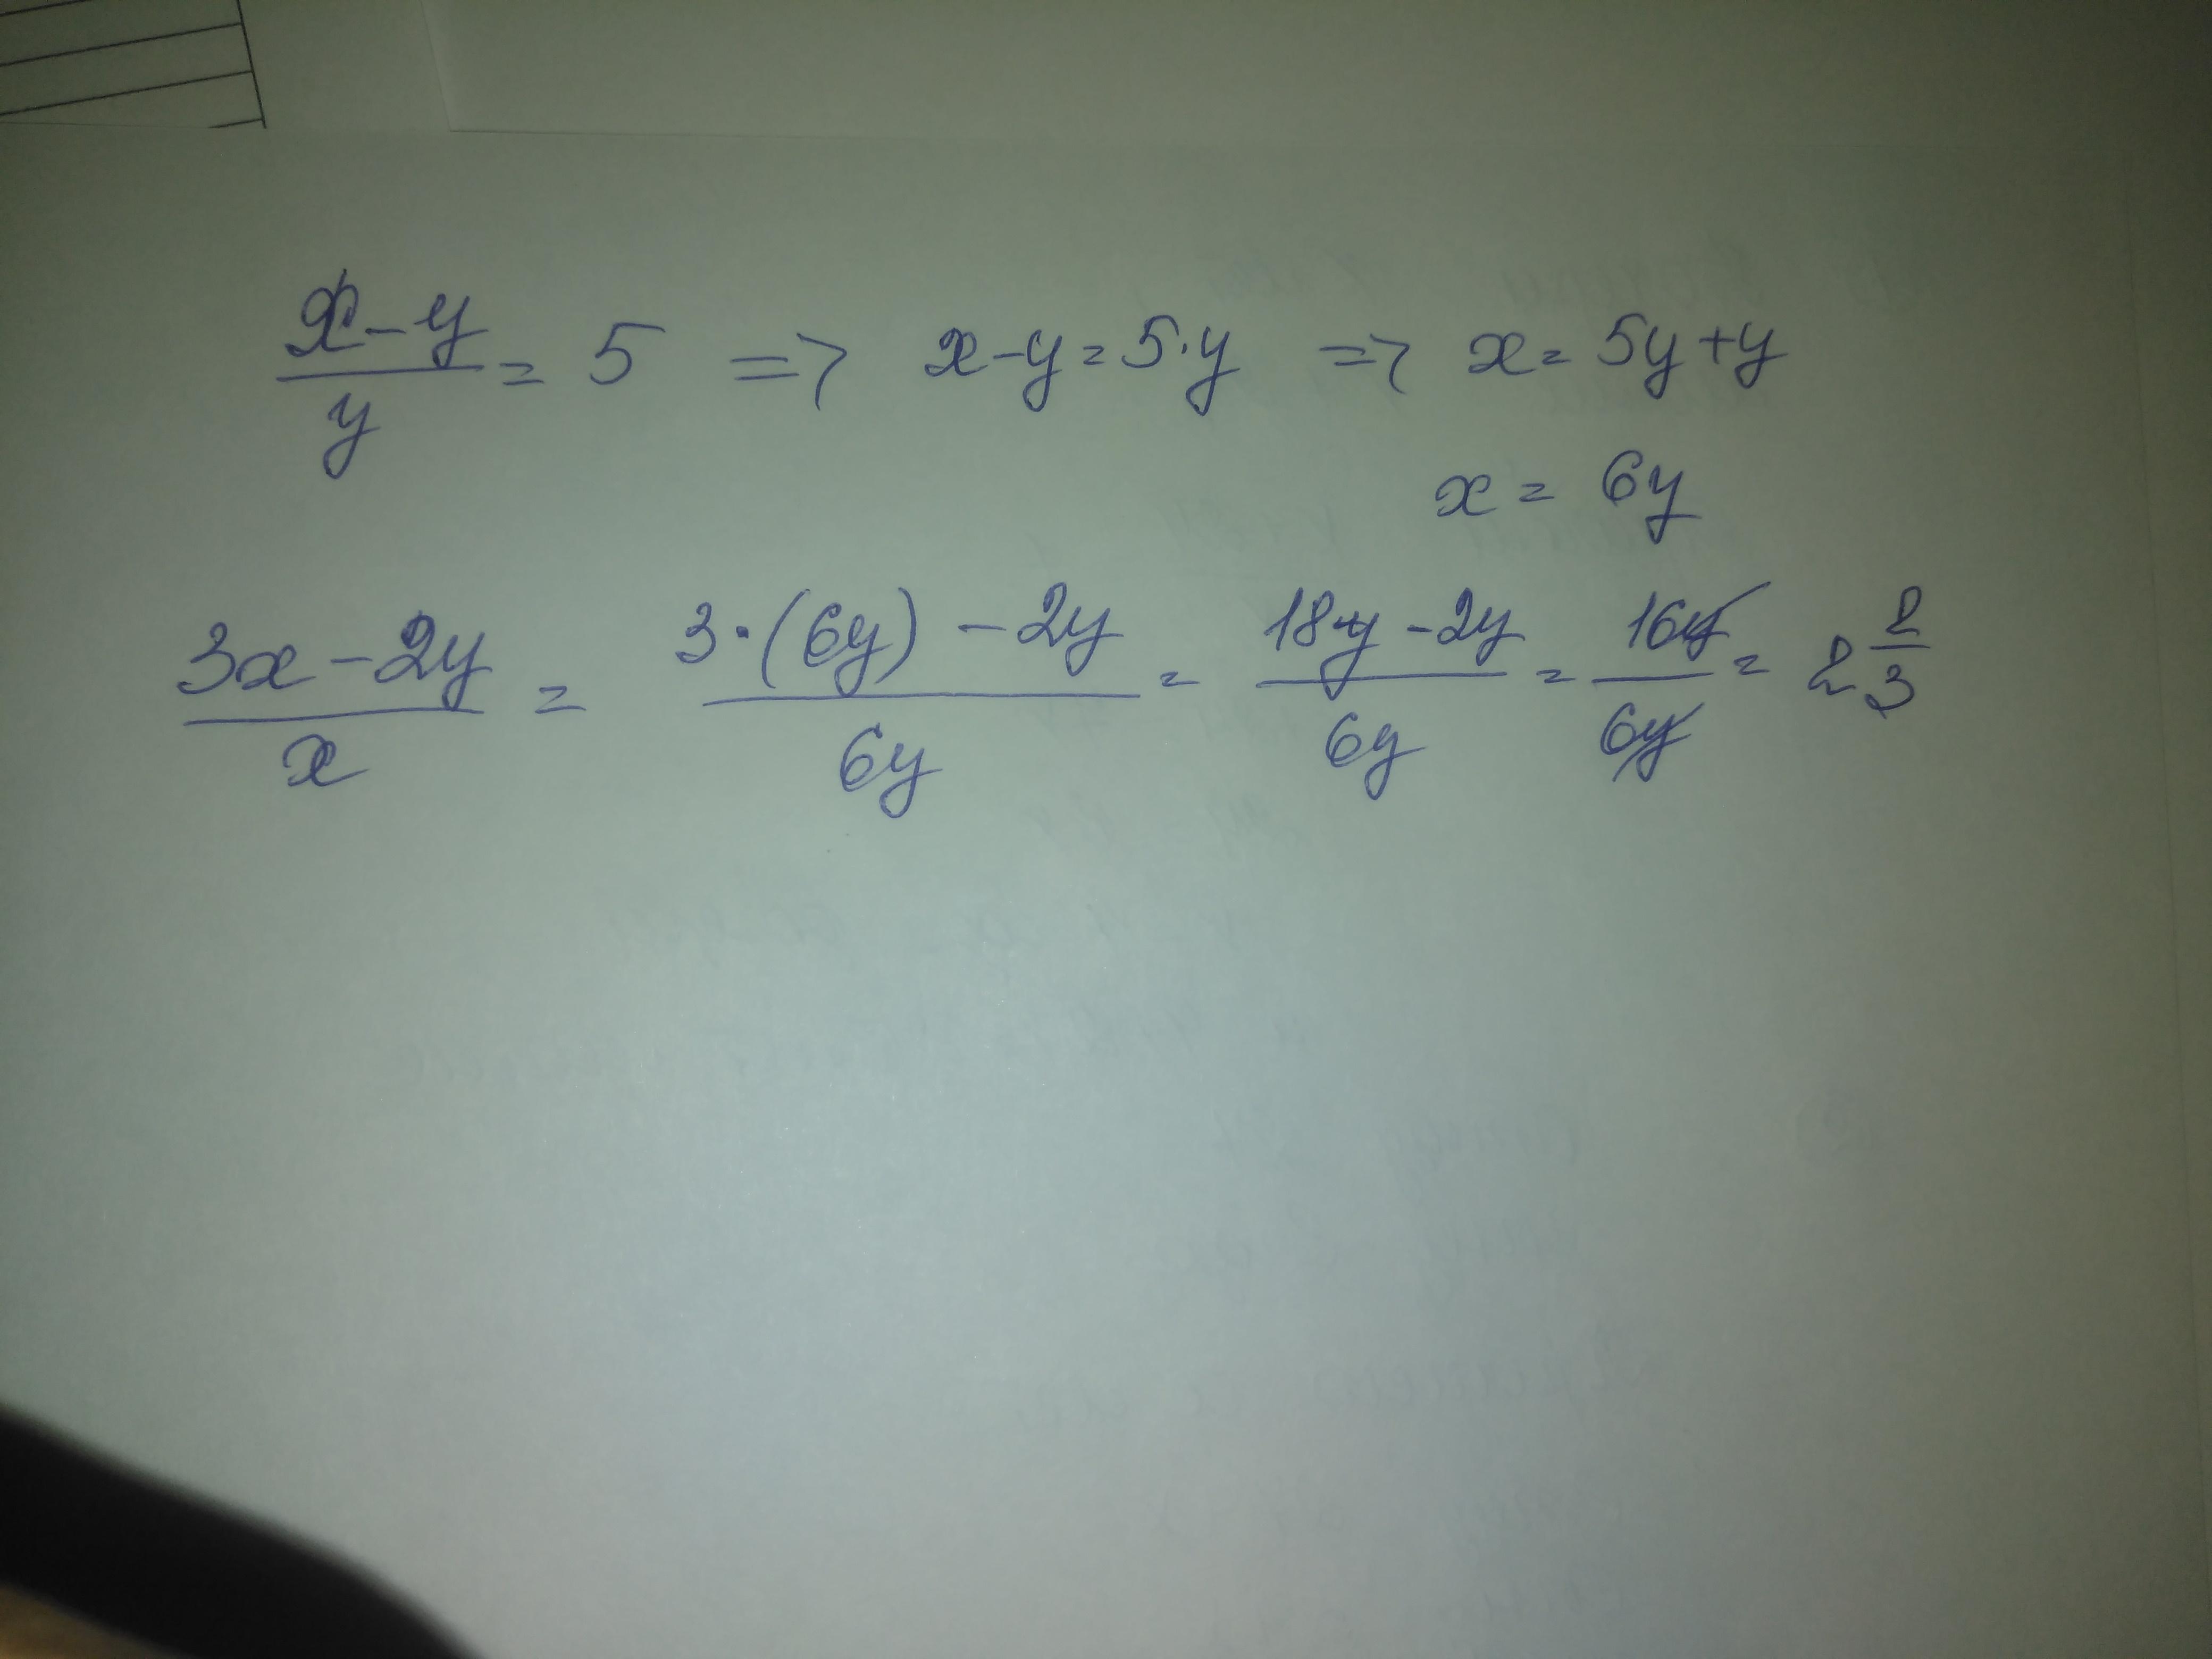 (x-y)/y = 5 => x-y=5·y => x=5y+y
x = 6y
(3x-2y)/x = (3·(6y)-2y)/6y = (18y-2y)/6y = 16y/6y = 2 2/3